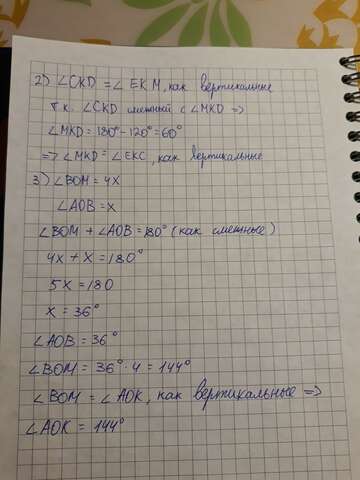 2) ∠CKD = ∠EKM, как вертикальные
т.к. ∠CKD смежный с ∠MKD =>
∠MKD = 180° - 120° = 60°
=> ∠MKD = ∠EKC, как вертикальные
3) ∠BOM = 4x
∠AOB = x
∠BOM + ∠AOB = 180° (как смежные)
4x + x = 180°
5x = 180
x = 36°
∠AOB = 36°
∠BOM = 36° · 4 = 144°
∠BOM = ∠AOK, как вертикальные =>
∠AOK = 144°